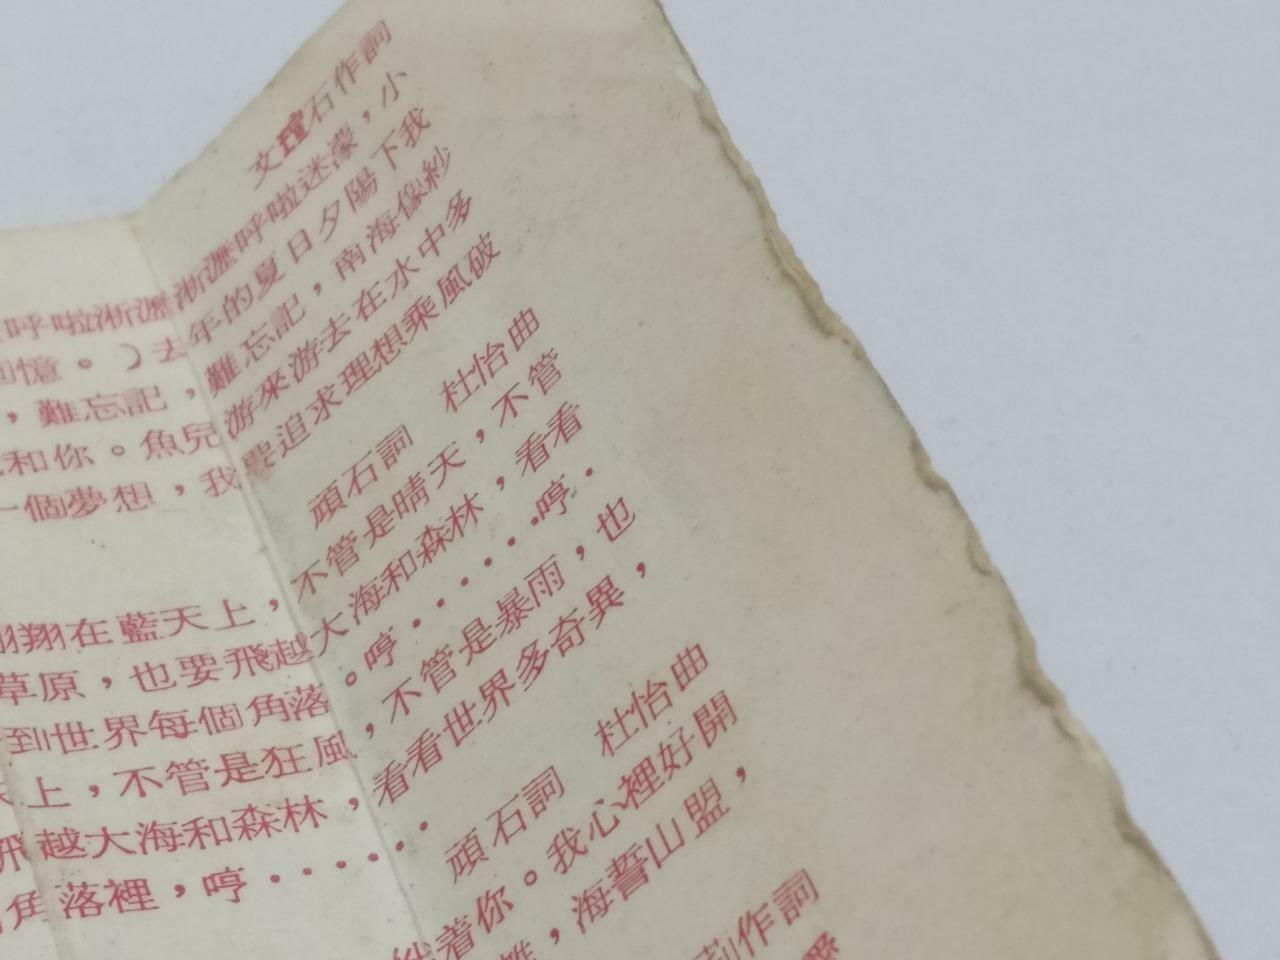 文瑄石作詞
呼啦淅瀝淅瀝呼啦迷濛，小
回憶。（去年的夏日夕陽下我
，難忘記，難忘記，南海像紗
和你。魚兒游來游去在水中多
一個夢想，我要追求理想乘風破
頑石詞 杜怡曲
翱翔在藍天上，不管是晴天，不管
草原，也要飛越大海和森林，看看
到世界每個角落。哼．．．．．哼．
天上，不管是狂風，不管是暴雨，也
飛越大海和森林，看看世界多奇異，
角落裡，哼．．．．．
頑石詞 杜怡曲
伴著你。我心裡好開
，海誓山盟，
莉作詞